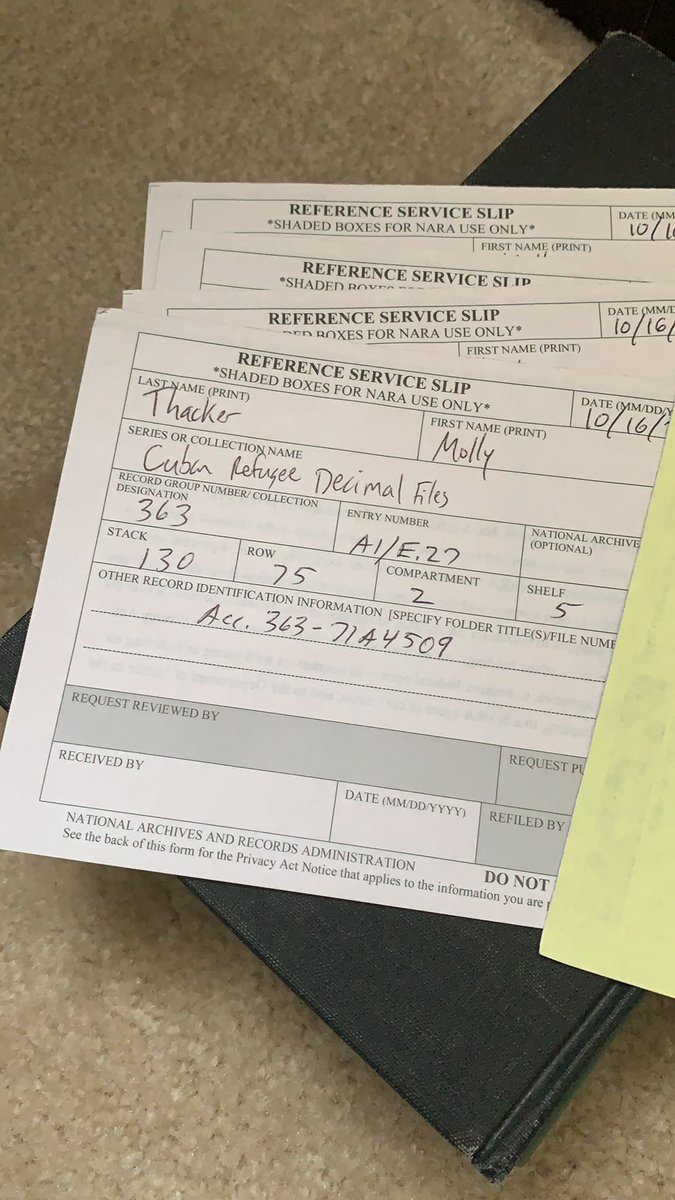 REFERENCE SERVICE SLIP
*SHADED BOXES FOR NARA USE ONLY*
DATE (MM
10/1
FIRST NAME (PRINT)
REFERENCE SERVICE SLIP
*SHADED
REFERENCE SERVICE SLIP
BOXES FOR NARA USE ONLY*
DATE (MM/D
10/16/
FIRST NAME (PRINT)
REFERENCE SERVICE SLIP
*SHADED BOXES FOR NARA USE ONLY*
DATE (MM/DD/Y
10/16/
LAST NAME (PRINT)
Thacker
FIRST NAME (PRINT)
Molly
SERIES OR COLLECTION NAME
Cuban Refugee Decimal Files
RECORD GROUP NUMBER/ COLLECTION
DESIGNATION
363
ENTRY NUMBER
A1/E.27
NATIONAL ARCHIVE
(OPTIONAL)
STACK
130
ROW
75
COMPARTMENT
2
SHELF
5
OTHER RECORD IDENTIFICATION INFORMATION [SPECIFY FOLDER TITLE(S)/FILE NUME
Acc. 363-71A4509
REQUEST REVIEWED BY
REQUEST PU
RECEIVED BY
DATE (MM/DD/YYYY)
REFILED BY
NATIONAL ARCHIVES AND RECORDS ADMINISTRATION
See the back of this form for the Privacy Act Notice that applies to the information you are
DO NOT